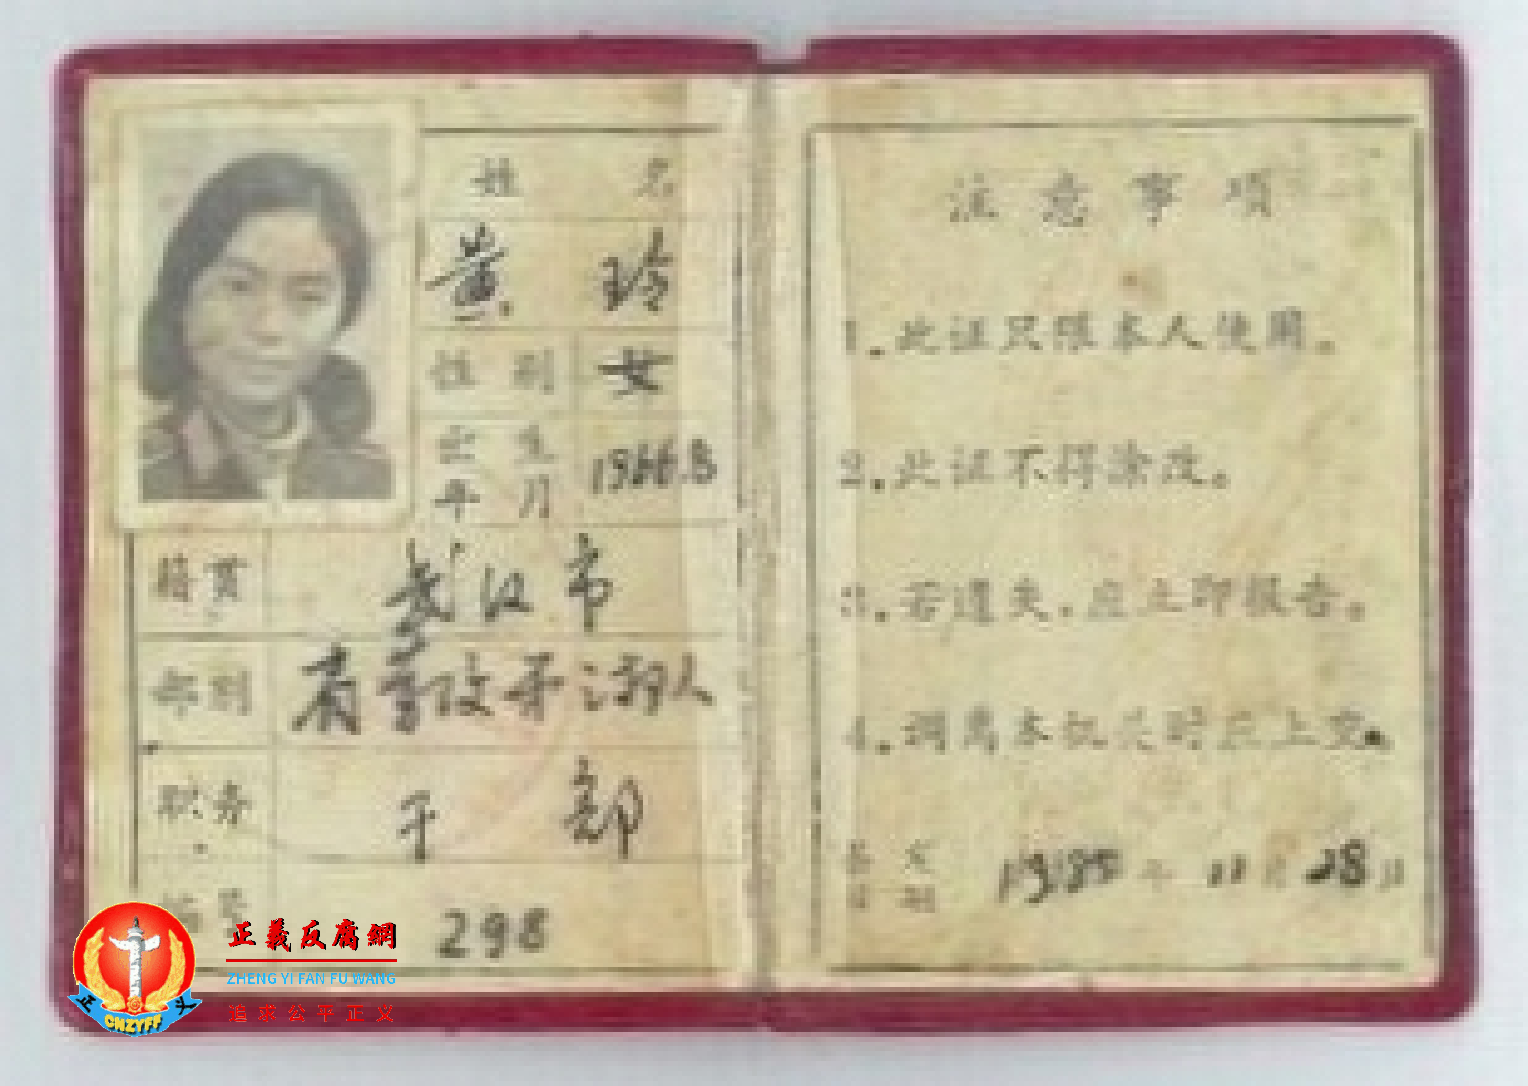 姓 名
黄 玲
性 别 女
出 生
年 月 1966.8
籍贯 武汉市
部别
职务 干 部
编号 298
注 意 事 项
1.此证只限本人使用。
2.此证不得涂改。
3.若遗失,应立即报告。
4.调离本机关时应上交。
年 月 28日
正義反腐網
ZHENG YI FAN FU WANG
追求公平正义
正 义
CNZYFF